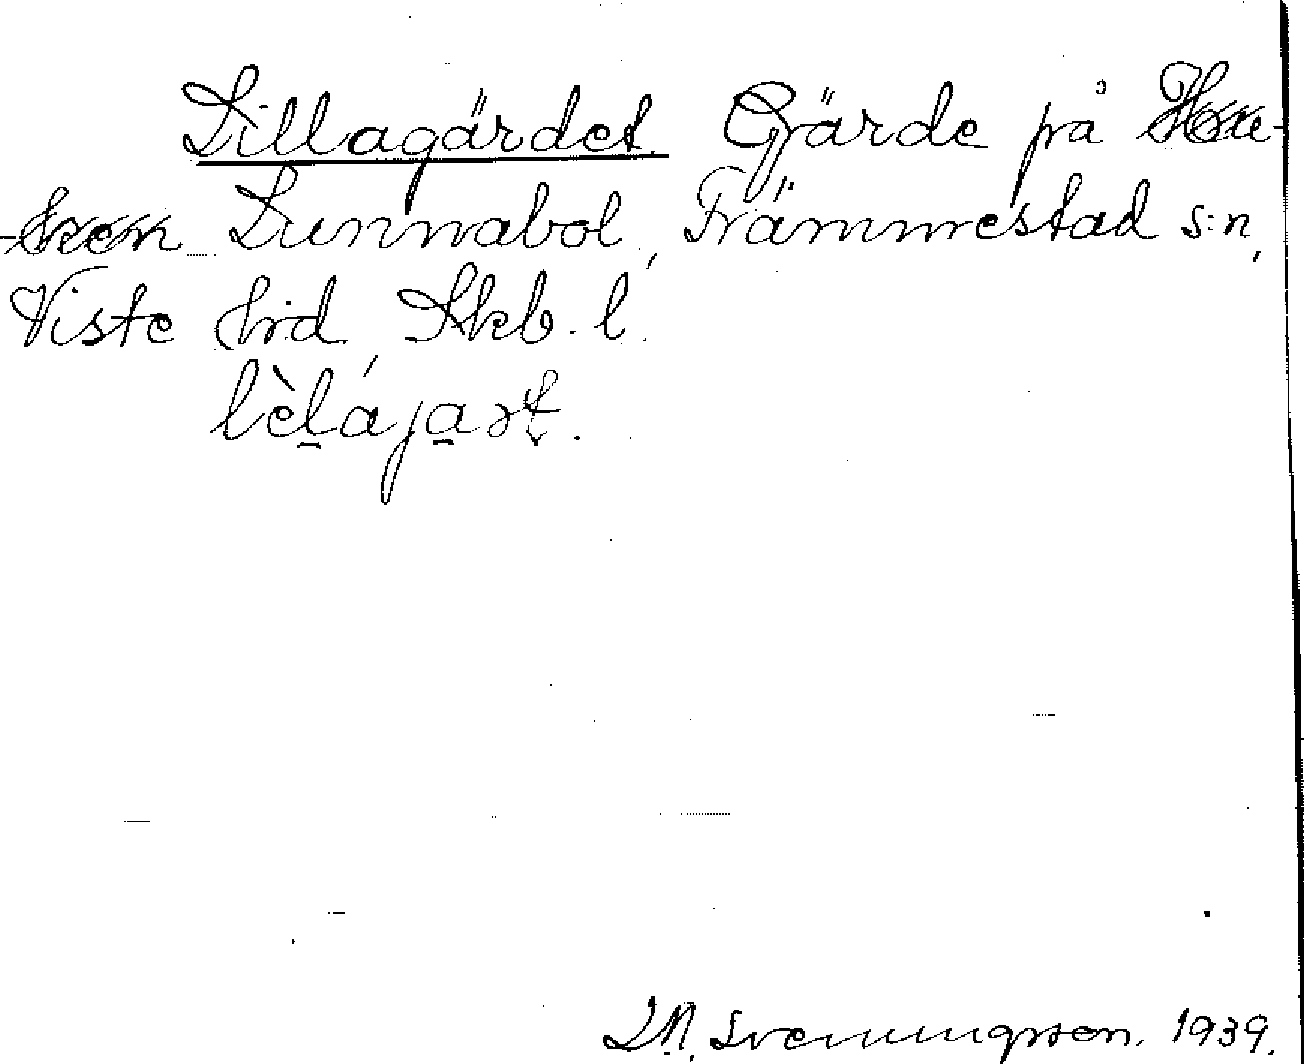 Lillagärdet. Gärde på
Lunnabol, Främmestad s:n,
Viste hrd, Skb. l.
bèlájart.
D.N. Svenungsson. 1939.